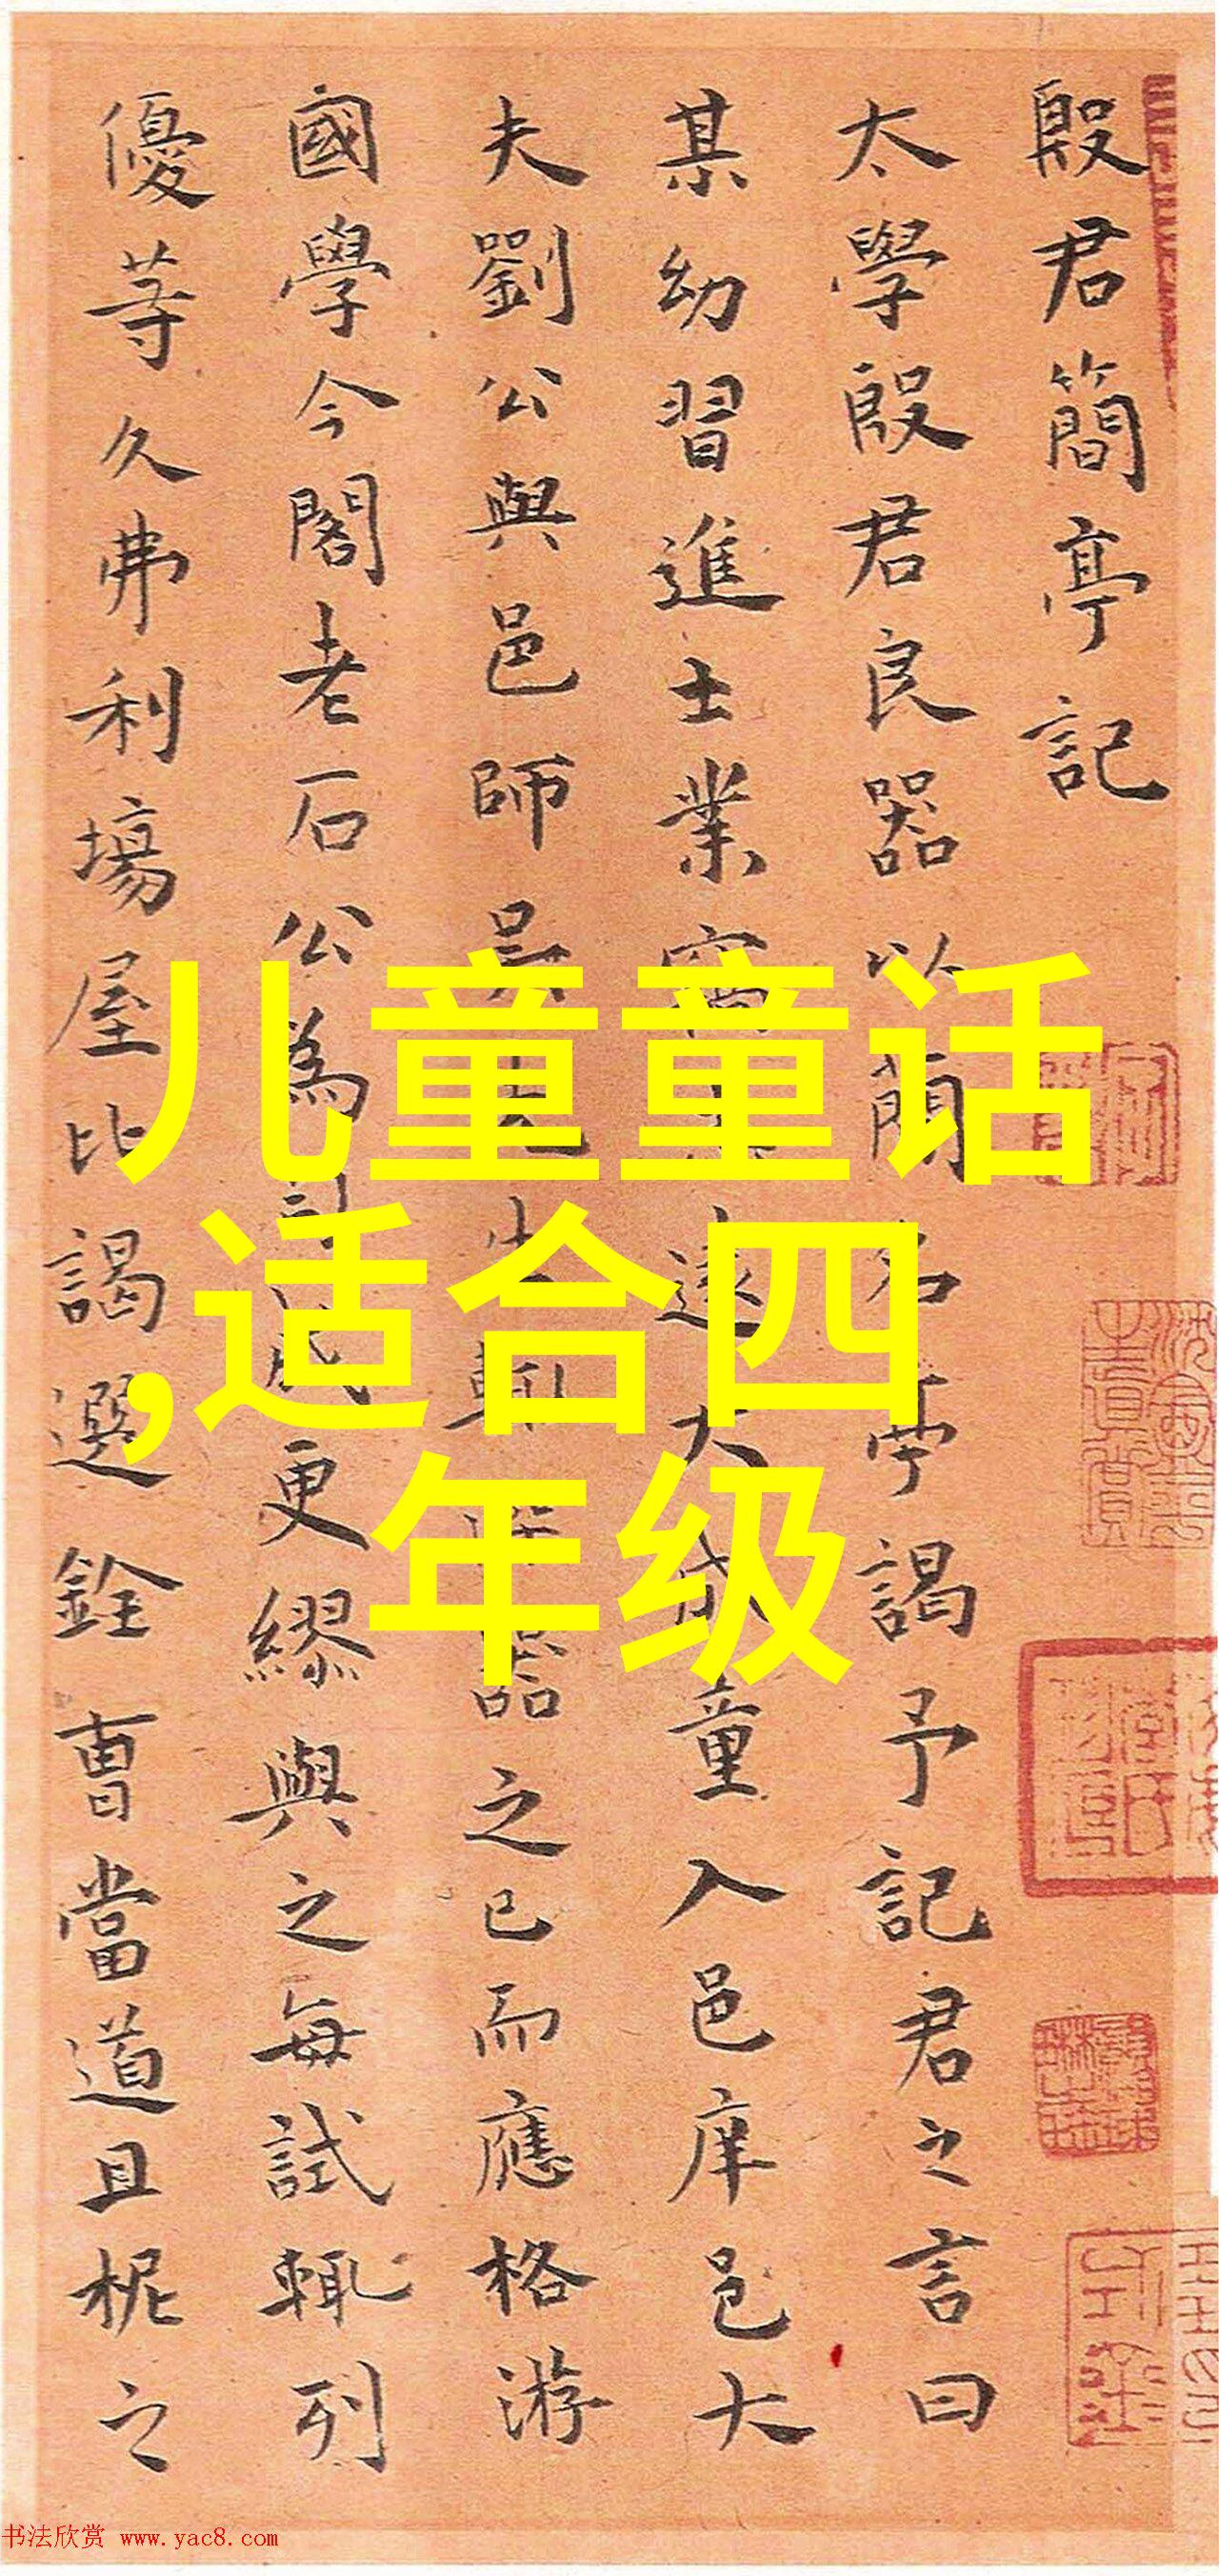 殷君簡亭記
太學殷君良器以簡名亭謁予記君之言曰
某幼習進士業遠大成童入邑庠邑大
夫劉公與邑師吳先生輒器之已而應格游
國學今閣老石公為司成更繆與之每試輒列
優等久弗利場屋比謁選銓曹當道且柅之
儿童童话
,适合四
年级
书法欣赏 www.yac8.com